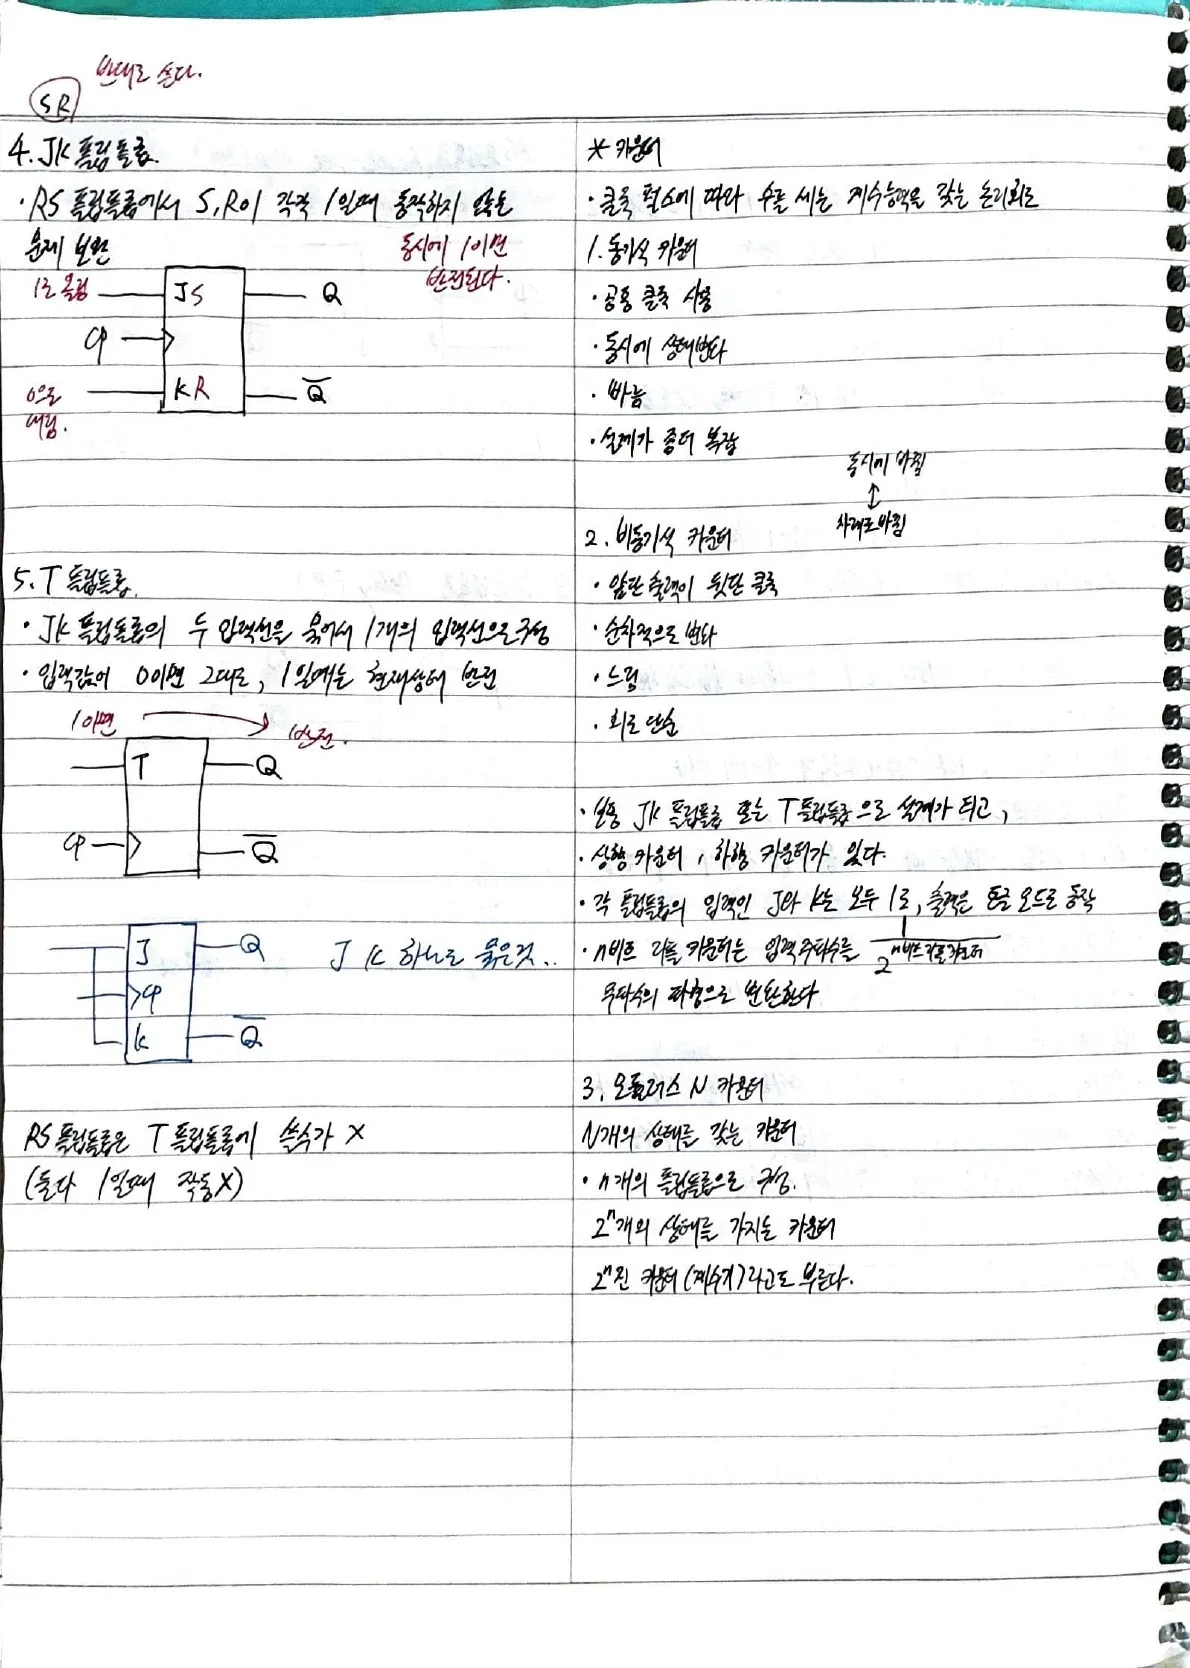 반대로 쓴다.
SR
4. JK 플립플롭.
· RS 플립플롭에서 S, R이 각각 1일때 동작하지 않는
문제 보완
동시에 1이면
반전된다.
1로 올림
JS
Q
CP
0으로
내림.
KR
Q̅
5. T 플립플롭.
· JK 플립플롭의 두 입력선을 묶어서 1개의 입력선으로 구성
· 입력값이 0이면 그대로, 1일때는 현재상태 반전
1이면
반전.
T
Q
CP
Q̅
J
Q
J K 하나로 묶은것..
CP
K
Q̅
RS 플립플롭은 T 플립플롭에 쓸수가 X
(둘다 1일때 작동X)
* 카운터
· 클록 펄스에 따라 수를 세는 계수능력을 갖는 논리회로
1. 동기식 카운터
· 공통 클록 사용
· 동시에 상태변화
· 빠름
· 설계가 좀더 복잡
동시에 바뀜
↕
차례로 바뀜
2. 비동기식 카운터
· 앞단 출력이 뒷단 클록
· 순차적으로 변화
· 느림
· 회로 단순
· 보통 JK 플립플롭 또는 T 플립플롭으로 설계가 되고,
· 상향 카운터, 하향 카운터가 있다.
· 각 플립플롭의 입력인 J와 K는 모두 1로, 출력은 토글 모드로 동작
· n비트 리플 카운터는 입력 주파수를 1/2ⁿ비트리플카운터
주파수의 파형으로 변환한다
3. 모듈러스 N 카운터
N개의 상태를 갖는 카운터
· n개의 플립플롭으로 구성.
2ⁿ개의 상태를 가지는 카운터
2ⁿ진 카운터(계수기)라고도 부른다.